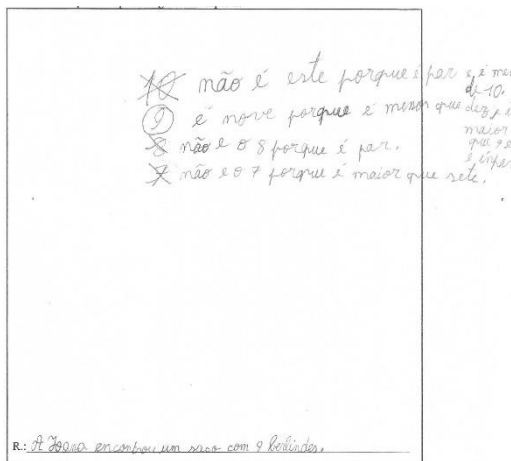 10 não é este porque é par e é menor de 10.
9 é nove porque é menor que dez e é maior que 7 e é ímpar
8 não é o 8 porque é par.
7 não é o 7 porque é maior que sete.
R.: A Joana encontrou um saco com 9 berlindes.